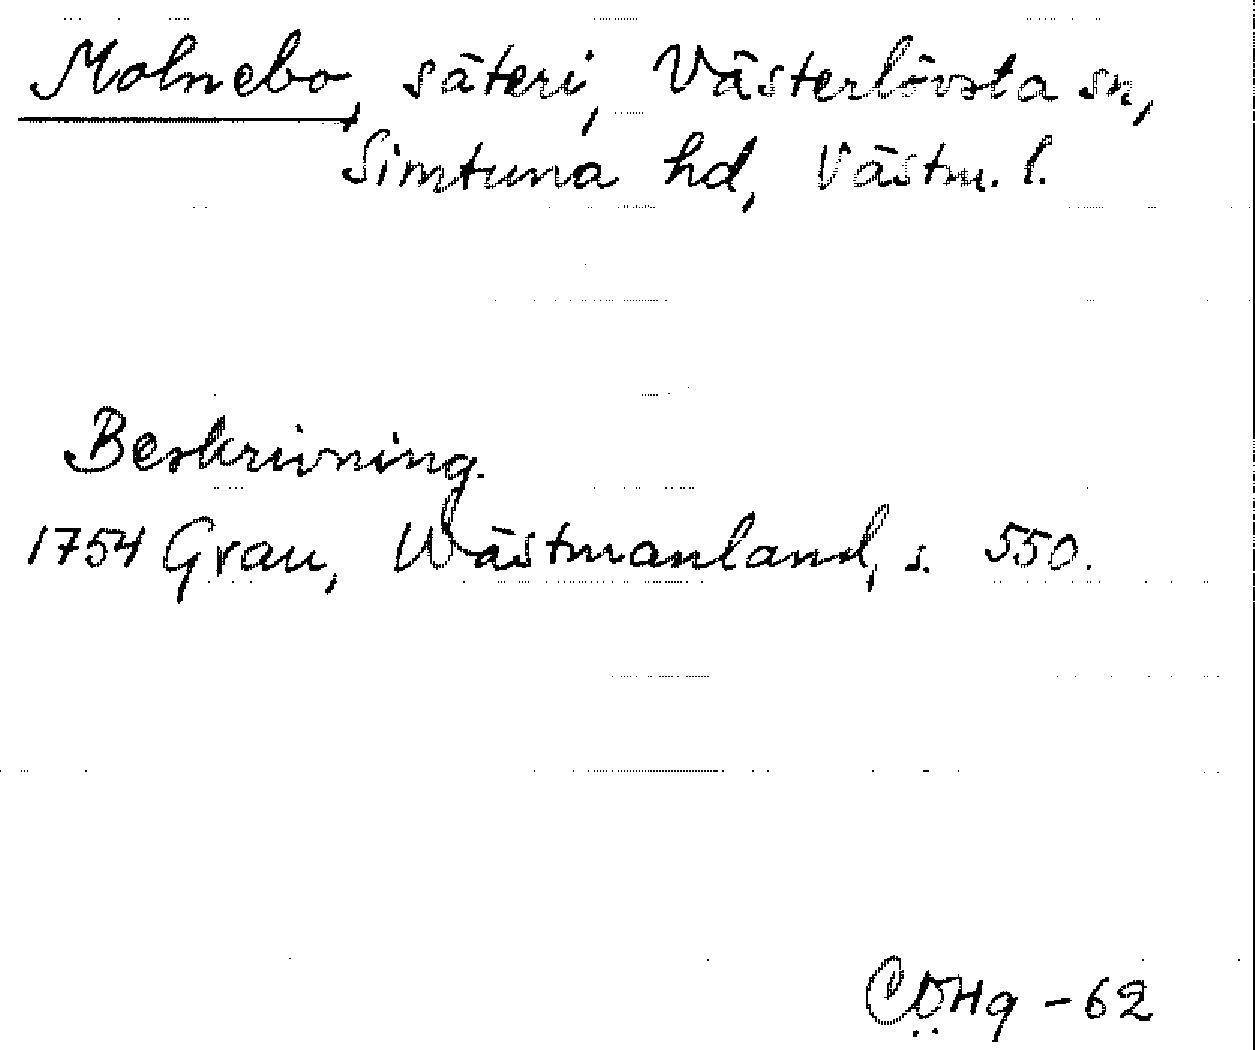 Molnebo, säteri, Västerlövsta sn,
Simtuna hd, Västm. l.
Beskrivning.
1754 Grau, Wästmanland, s. 550.
CÖHg - 62